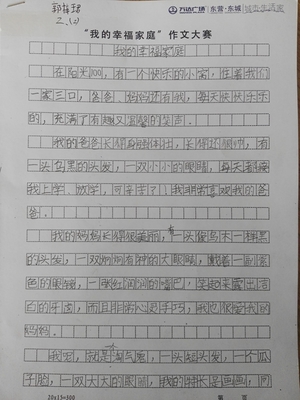 万达广场 东营·东城
2.(2)
“我的幸福家庭”作文大赛
我的幸福家庭
在阳光100,有一个快乐的小家,住着我们
一家三口,爸爸、妈妈还有我,每天快快乐乐
的,充满了有趣又温馨的笑声。
我的爸爸长得身体,长得还,有
一头乌黑的头发,一双小小的眼睛,每天接
我上学、放学,可辛苦了!我非常喜欢我的爸
爸。
我的妈妈长得很美丽,有一头像乌木一样黑
的头发,一双炯炯有神的大眼睛,戴着一副
色的眼镜,一张红润润的嘴巴,笑起来露出洁
白的牙齿,而且非常心灵手巧,我也很爱我的
妈妈。
我呢,就是个淘气,一头短头发,一个瓜
子脸,一双大大的眼睛,我的特长是画画,同
20×15=300
第 页